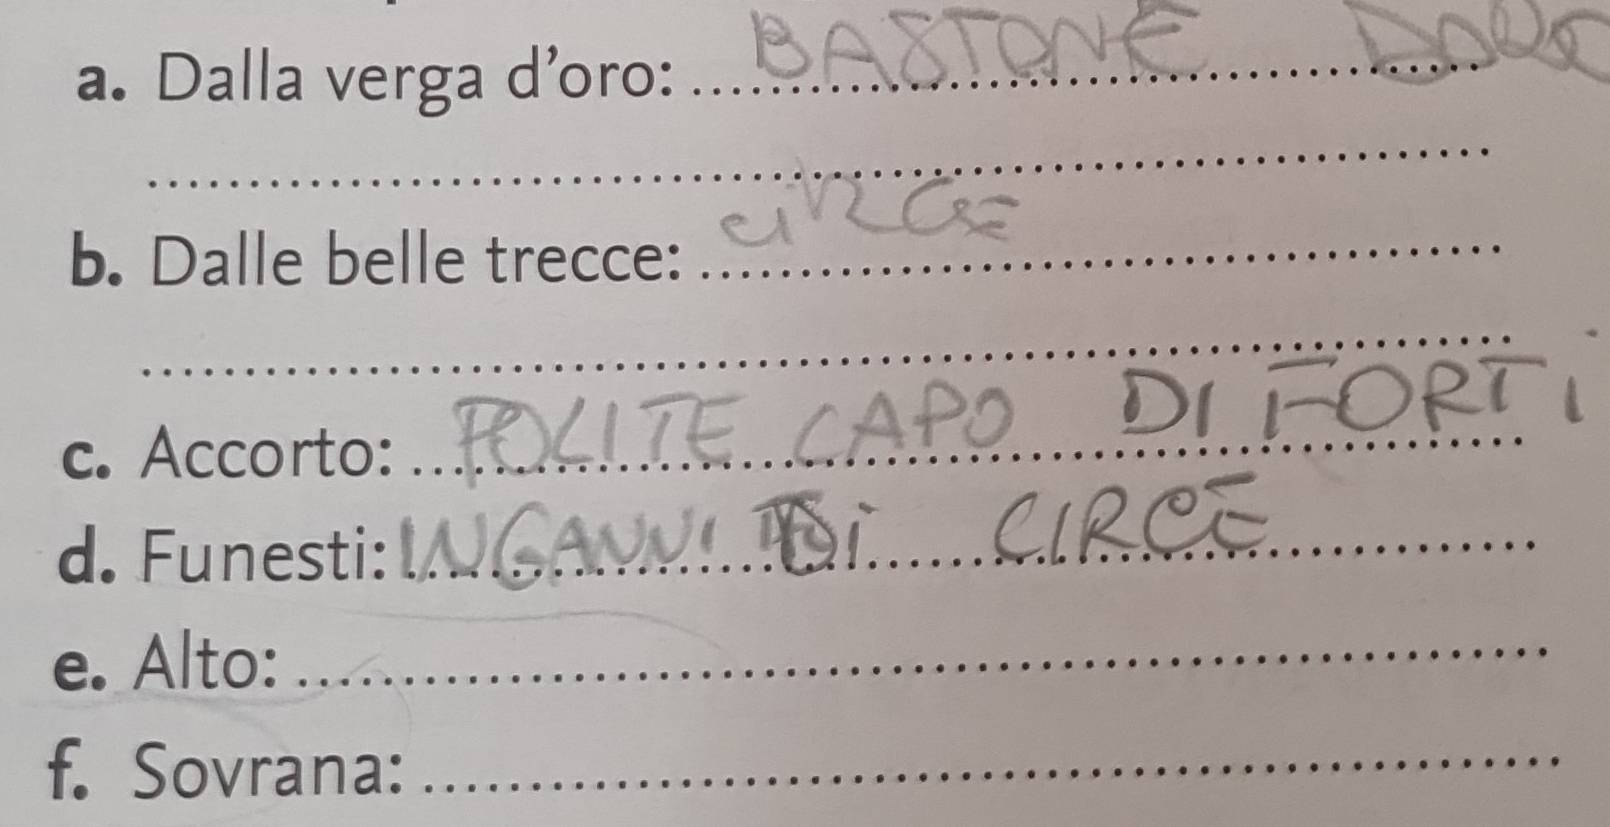 a. Dalla verga d'oro: BASTONE
b. Dalle belle trecce: CIRCE
c. Accorto: POLITE CAPO DI FORTI
d. Funesti: INGANNI DI CIRCE
e. Alto:
f. Sovrana: